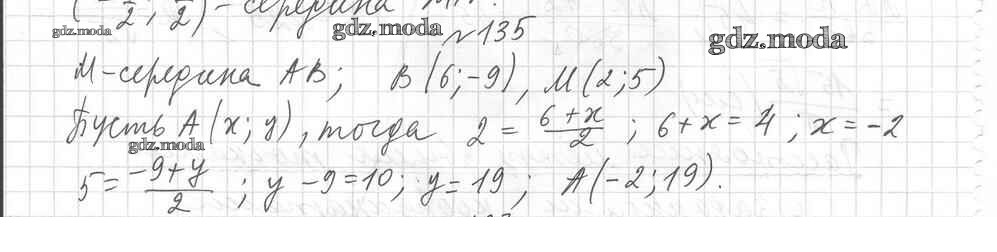 (-/2 ; /2) - середина MN.
№135
M-середина AB; B(6;-9), M(2;5)
Пусть A(x;y), тогда 2 = (6+x)/2 ; 6+x=4 ; x=-2
5 = (-9+y)/2 ; y-9=10; y=19 ; A(-2;19).
gdz.moda
gdz.moda
gdz.moda
gdz.moda